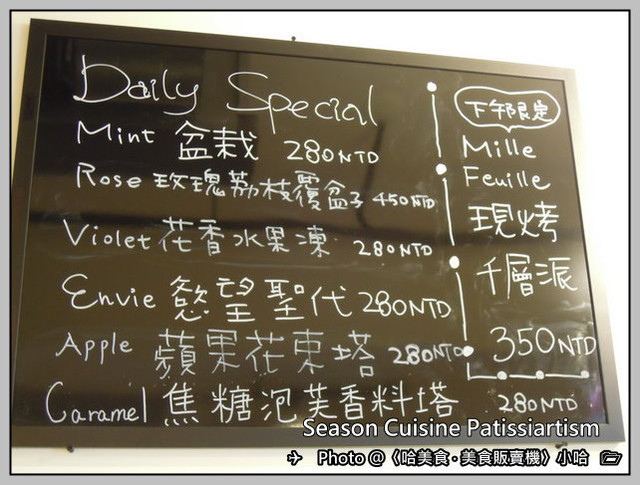 Daily Special
Mint 盆栽 280NTD
Rose 玫瑰荔枝覆盆子 450NTD
Violet 花香水果凍 280NTD
Envie 慾望聖代 280NTD
Apple 蘋果花束塔 280NTD
Caramel 焦糖泡芙香料塔 280NTD
下午限定
Mille
Feuille
現烤
千層派
350NTD
Season Cuisine Patissiartism
Photo @〈哈美食‧美食販賣機〉小哈